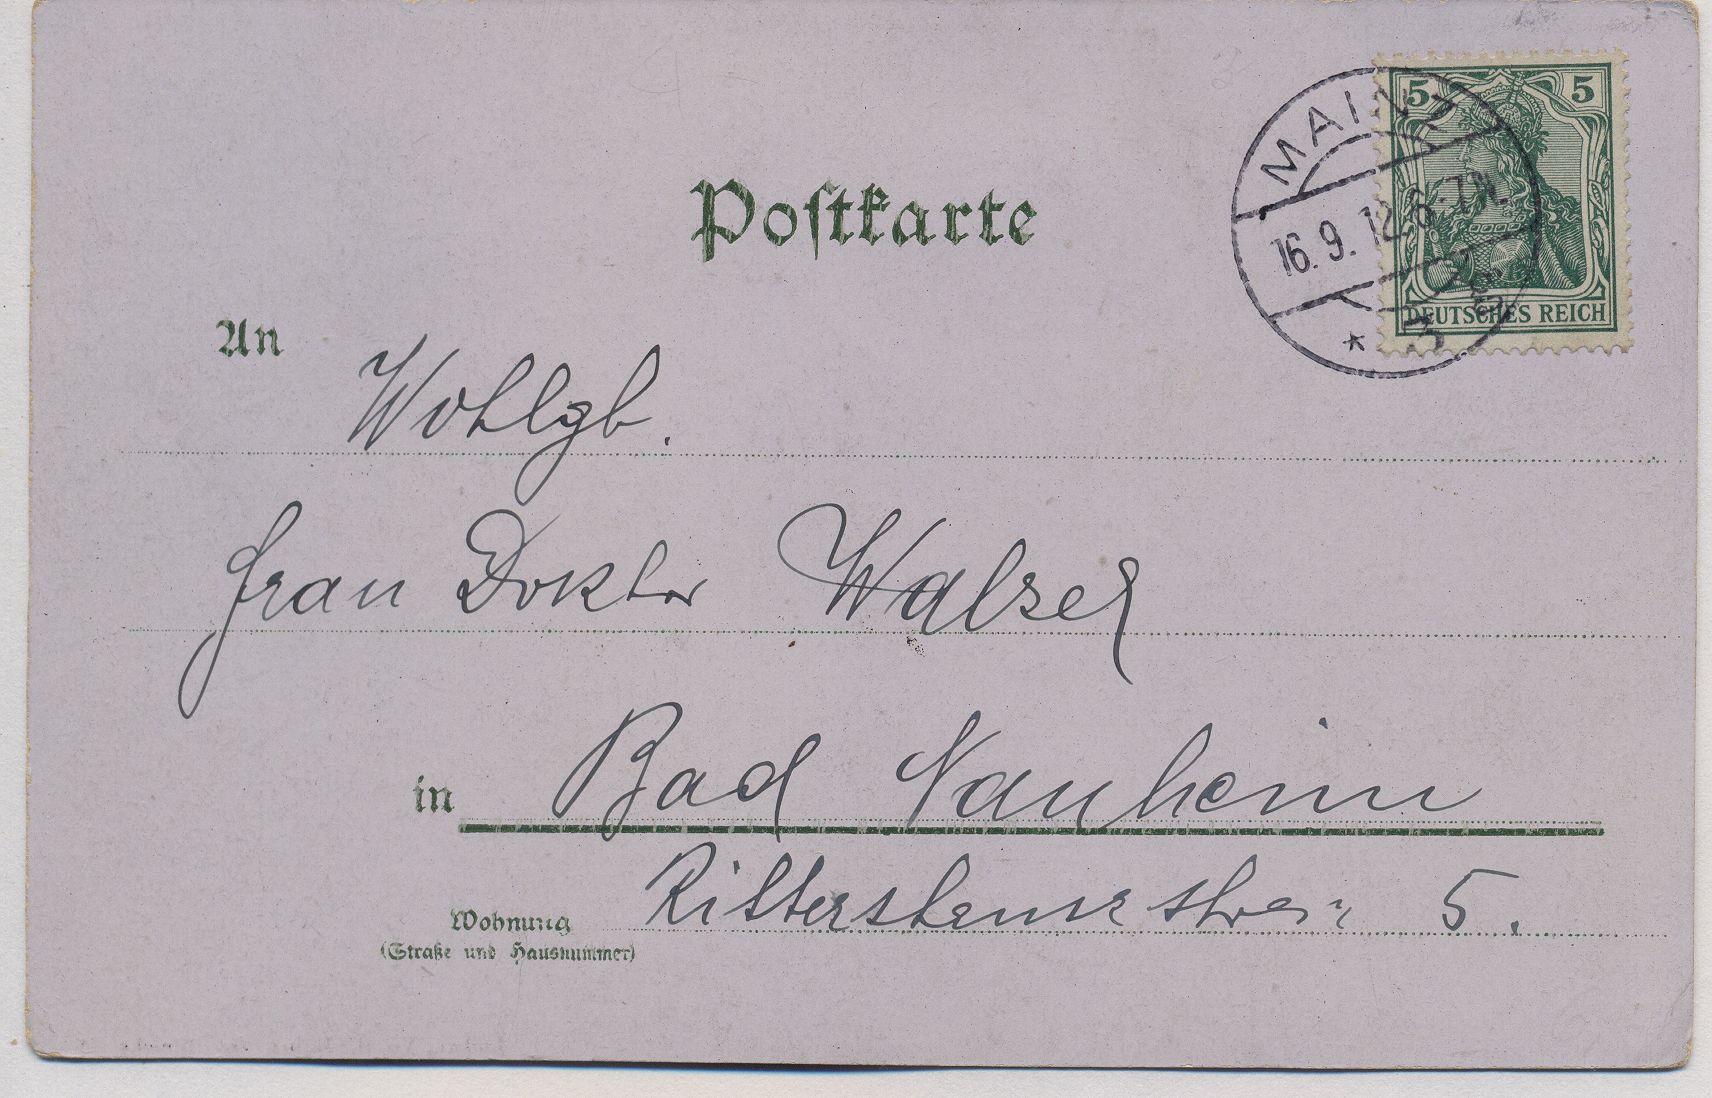 Postkarte
5 5
DEUTSCHES REICH
MAINZ
16.9.12.6-7N.
* 3
An
Wohlgb.
Frau Doktor Walzer
in Bad Nauheim
5.
Wohnung
(Straße und Hausnummer)